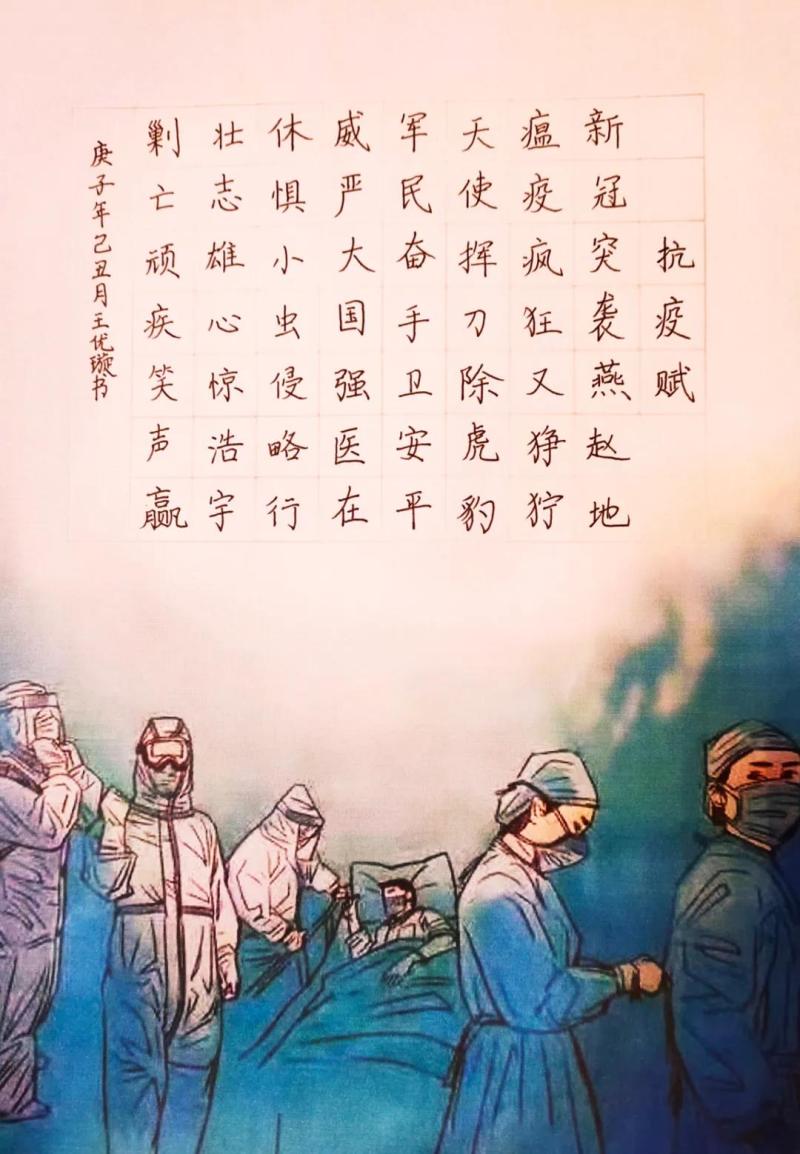 抗疫赋
新冠突袭燕赵地
瘟疫疯狂又狰狞
天使挥刀除虎豹
军民奋手卫安平
威严大国强医在
休惧小虫侵略行
壮志雄心惊浩宇
剿亡顽疾笑声赢
庚子年己丑月王优璇书